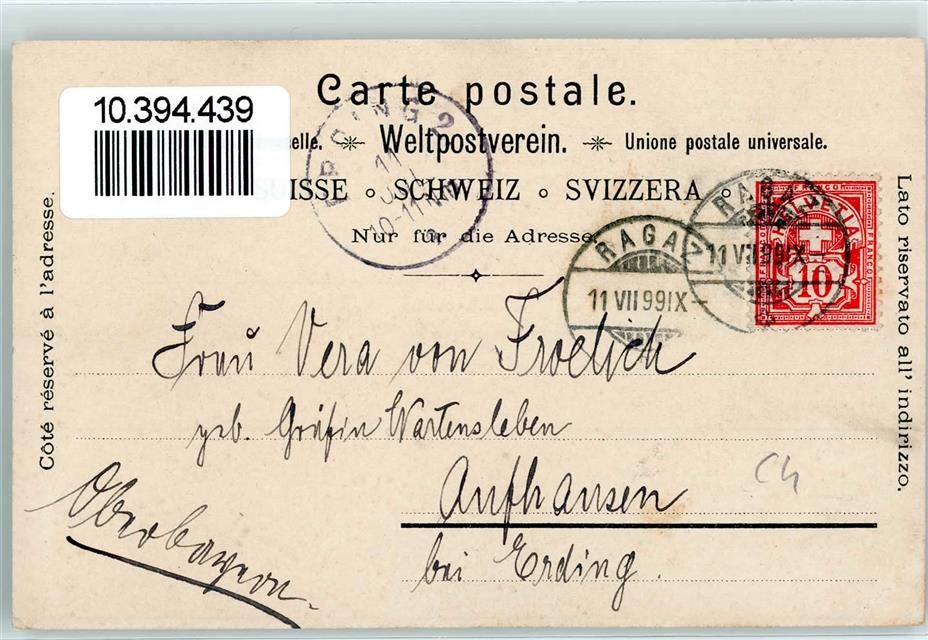 Carte postale.
10.394.439
elle. Weltpostverein. Unione postale universale.
SUISSE ○ SCHWEIZ ○ SVIZZERA ○
Nur für die Adresse.
ERDING 2
11
JUL
10-11
RAGAZ
11 VII 99 IX-
RAGAZ
11 VII 99 IX-
FRANCO
HELVETIA
FRANCO
10
Côté réservé à l'adresse.
Lato riservato all' indirizzo.
Frau Vera von Froelich
geb. Gräfin Wartensleben
Aufhausen
Ch
bei Erding.
Oberbayern.